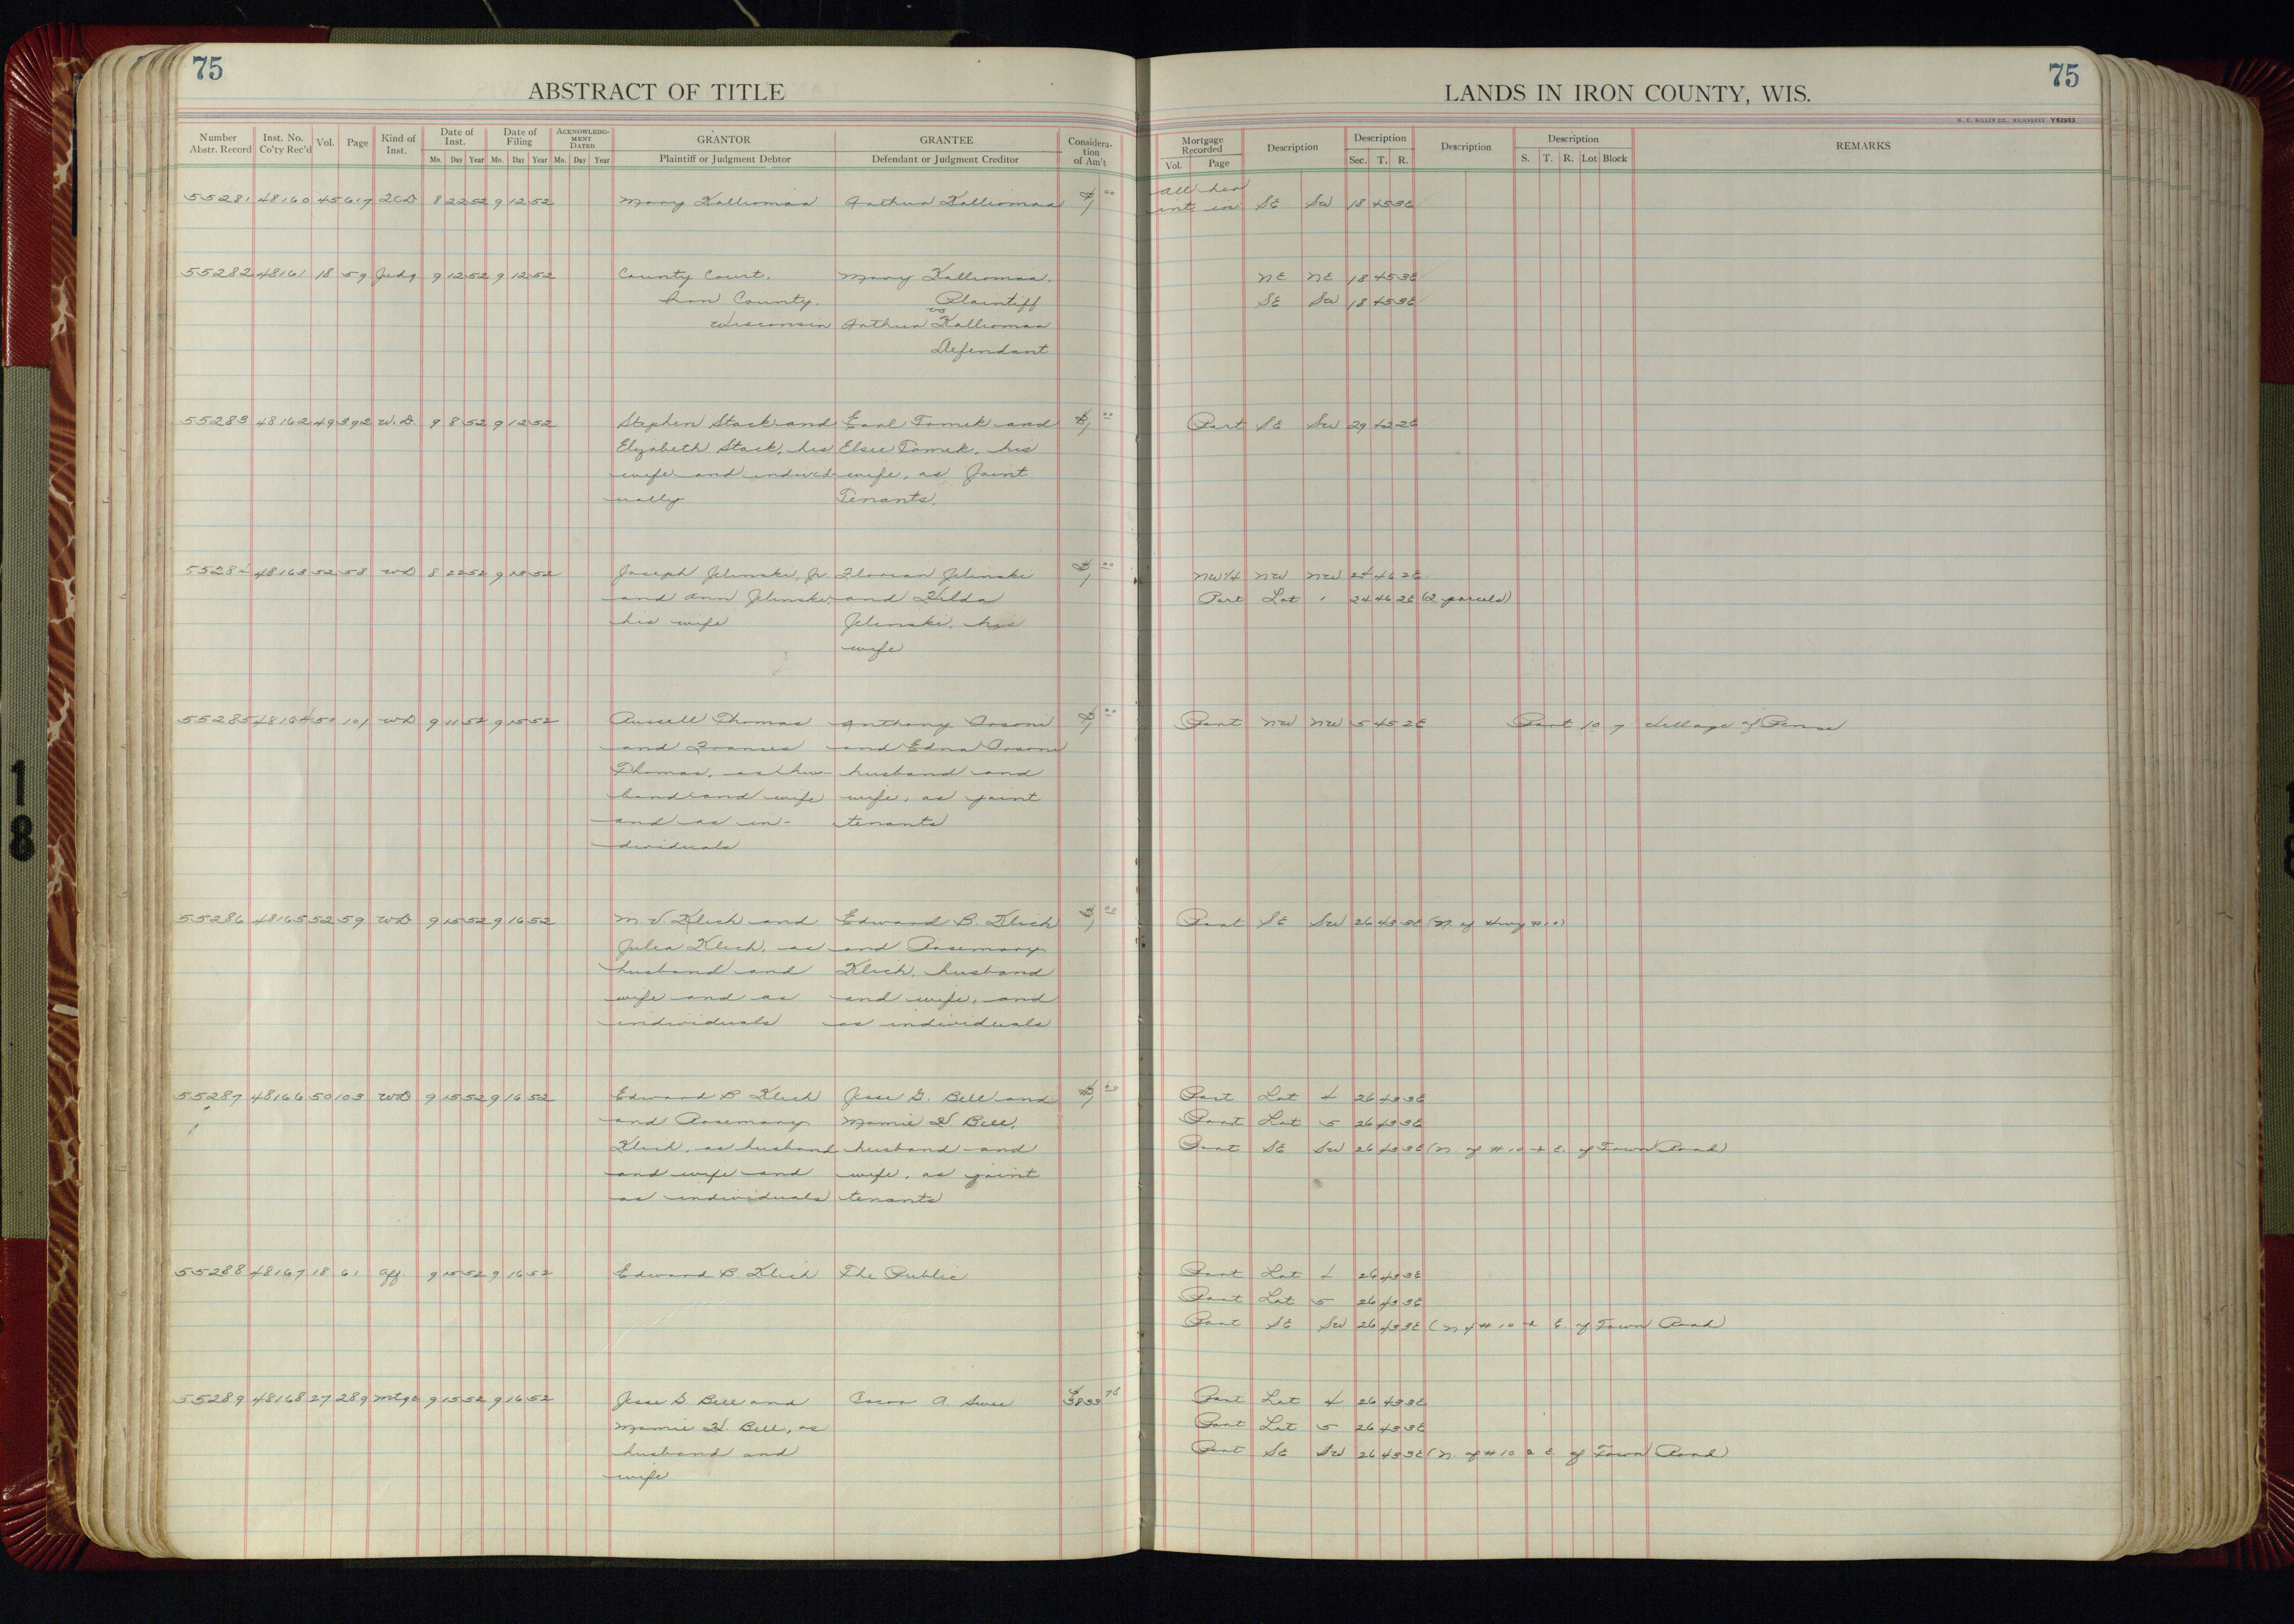 75
ABSTRACT OF TITLE
LANDS IN IRON COUNTY, WIS.
75
H. C. MILLER CO., MILWAUKEE Y82953
Number Abstr. Record Inst. No. Co'ty Rec'd Vol. Page Kind of Inst. Date of Inst. Mo. Day Year Date of Filing Mo. Day Year ACKNOWLEDGMENT DATED Mo. Day Year GRANTOR Plaintiff or Judgment Debtor GRANTEE Defendant or Judgment Creditor Consideration of Am't Mortgage Recorded Vol. Page Description Description Sec. T. R. Description Description S. T. R. Lot Block REMARKS
All her
55281 48160 45 617 QCD 8 22 52 9 12 52 Mary Kalliomaa Arthur Kalliomaa $1 00 int in SE SW 18 45 3E
55282 48161 18 59 Judg 9 12 52 9 12 52 County Court, Mary Kalliomaa, NE NE 18 45 3E
Iron County, Plaintiff SE SW 18 45 3E
vs
Wisconsin Arthur Kalliomaa
Defendant
55283 48162 49 392 W.D. 9 8 52 9 12 52 Stephen Stack and Earl Tomek and $1 00 Part SE SW 29 42 2E
Elizabeth Stack, his Elsie Tomek, his
wife and individ- wife, as Joint
ually Tenants.
5528 48163 52 58 WD 8 22 52 9 13 52 Joseph Jelinski, Jr. Florian Jelinski $1 00 NW1/4 NW NW 24 46 2E
and Ann Jelinski, and Hilda Part Lot 1 24 46 2E (2 parcels)
his wife Jelinski, his
wife
55285 48164 50 101 WD 9 11 52 9 15 52 Russell Thomas Anthony Orsoni $1 00 Part NW NW 5 45 2E Part 10 7 Village of Pence
and Frances and Edna Orsoni
Thomas, as hus- husband and
band and wife wife, as joint
and as in- tenants
dividuals
55286 48165 52 59 WD 9 15 52 9 16 52 M V Klich and Edward B. Klich $1 00 Part SE SW 26 43 3E (N. of Hwy #10)
Julia Klich, as and Rosemary
husband and Klich, husband
wife and as and wife, and
individuals as individuals
55287 48166 50 103 WD 9 15 52 9 16 52 Edward B Klich Jesse G. Bell and $1 00 Part Lot 4 26 43 3E
and Rosemary Mamie H. Bell, Part Lot 5 26 43 3E
Klich, as husband husband and Part SE SW 26 43 3E (N. of #10 & E. of Town Road)
and wife and wife, as joint
as individuals tenants
55288 48167 18 61 Aff. 9 15 52 9 16 52 Edward B. Klich The Public Part Lot 4 26 43 3E
Part Lot 5 26 43 3E
Part SE SW 26 43 3E (N of #10 & E. of Town Road)
55289 48168 27 289 Mtge 9 15 52 9 16 52 Jesse G. Bell and A. $3833 Part Lot 4 26 43 3E
Mamie H. Bell, as Part Lot 5 26 43 3E
husband and Part SE SW 26 43 3E (N. of #10 & E of Town Road)
wife
18